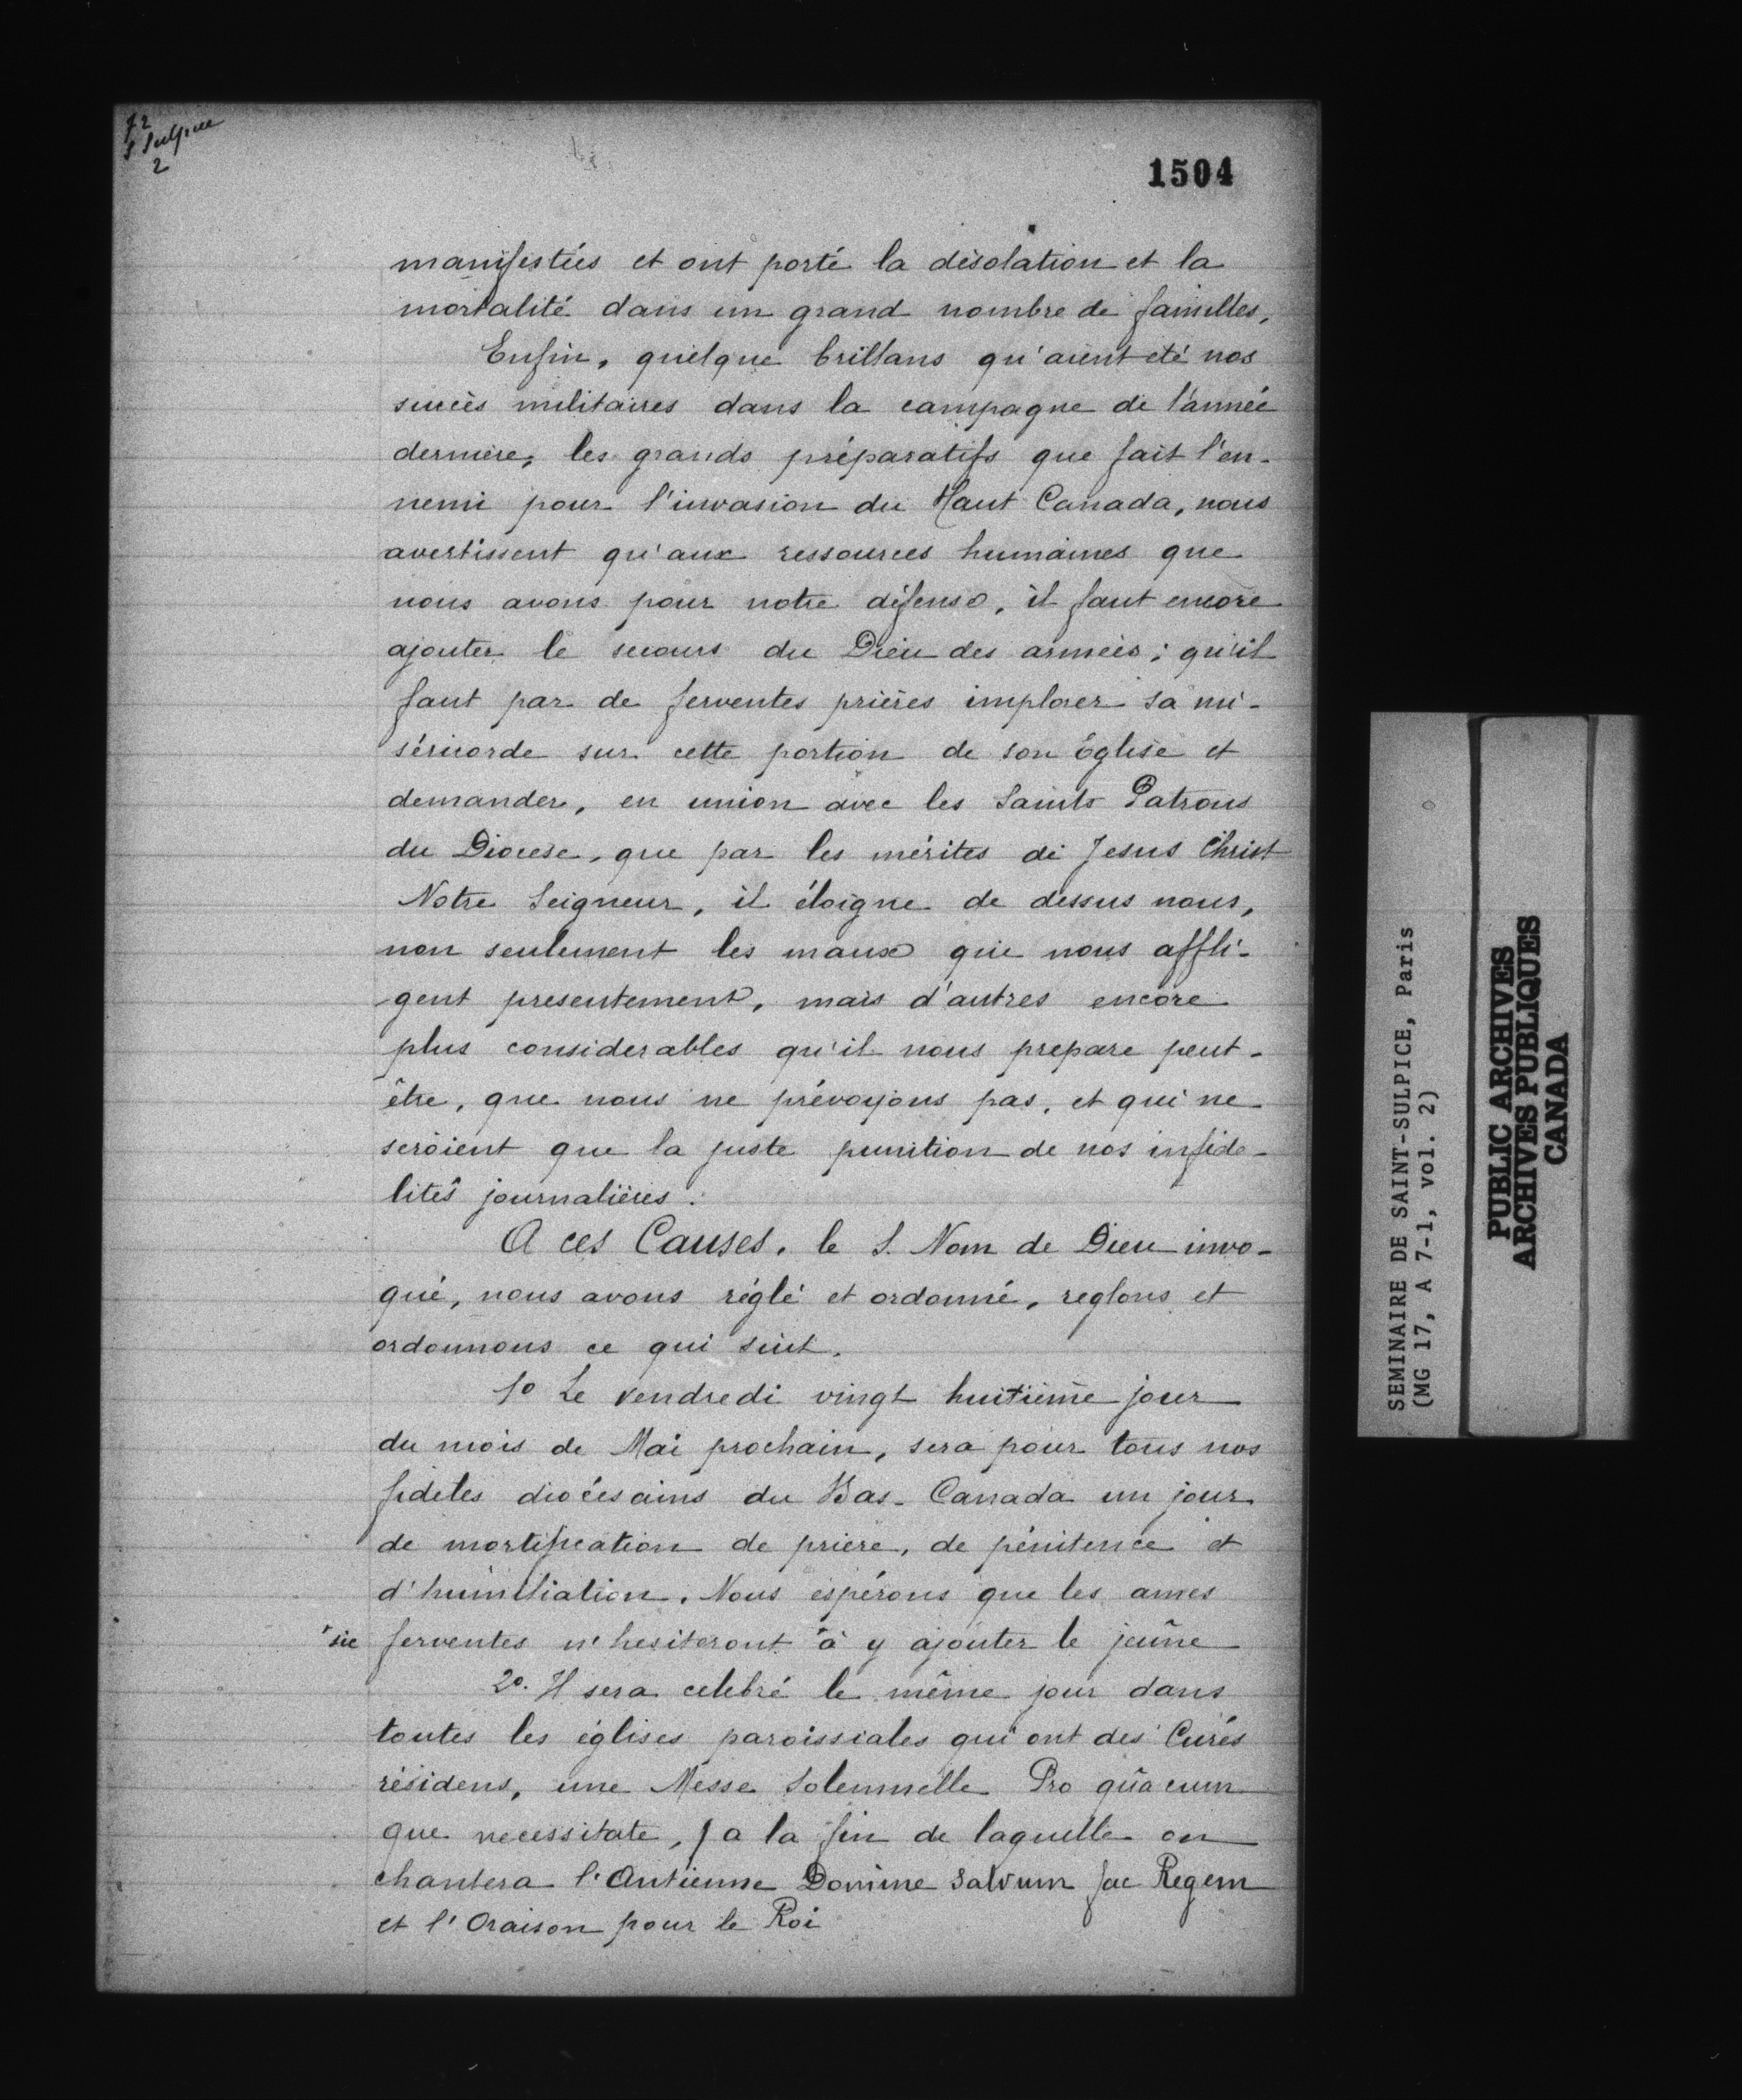 72
S. Sulpice
2
1504
manifestées et ont porté la désolation et la
mortalité dans un grand nombre de familles.
Enfin, quelque brillans qu'aient eté nos
succès militaires dans la campagne de l'année
dernière, les grands préparatifs que fait l'en-
nemi pour l'invasion du Haut Canada, nous
avertissent qu'aux ressources humaines que
nous avons pour notre défense, il faut encore
ajouter le secours du Dieu des armées; qu'il
faut par de ferventes prières implorer sa mi-
séricorde sur cette portion de son église et
demander, en union avec les Saints Patrons
du Diocese, que par les mérites de Jesus Christ
Notre Seigneur, il éloigne de dessus nous,
non seulement les maux qui nous affli-
gent presentement, mais d'autres encore
plus considerables qu'il nous prepare peut-
être, que nous ne prévoyons pas, et qui ne
seroient que la juste punition de nos infide-
lités journalières.
A ces Causes, le S. Nom de Dieu invo-
qué, nous avons réglé et ordonné, reglons et
ordonnons ce qui suit.
1º Le vendredi vingt huitième jour
du mois de Mai prochain, sera pour tous nos
fideles diocésains du Bas-Canada un jour
de mortification de priere, de pénitence et
d'humiliation. Nous espérons que les ames
* sic ferventes n'hesiteront * à y ajouter le jeûne
2º. Il sera celebré le même jour dans
toutes les églises paroissiales qui ont des Curés
résidens, une Messe Solemnelle Pro quacum
que necessitate, à la fin de laquelle on
chantera l'Antienne Domine salvum fac Regem
et l'Oraison pour le Roi
SEMINAIRE DE SAINT-SULPICE, Paris
(MG 17, A 7-1, vol. 2)
PUBLIC ARCHIVES
ARCHIVES PUBLIQUES
CANADA